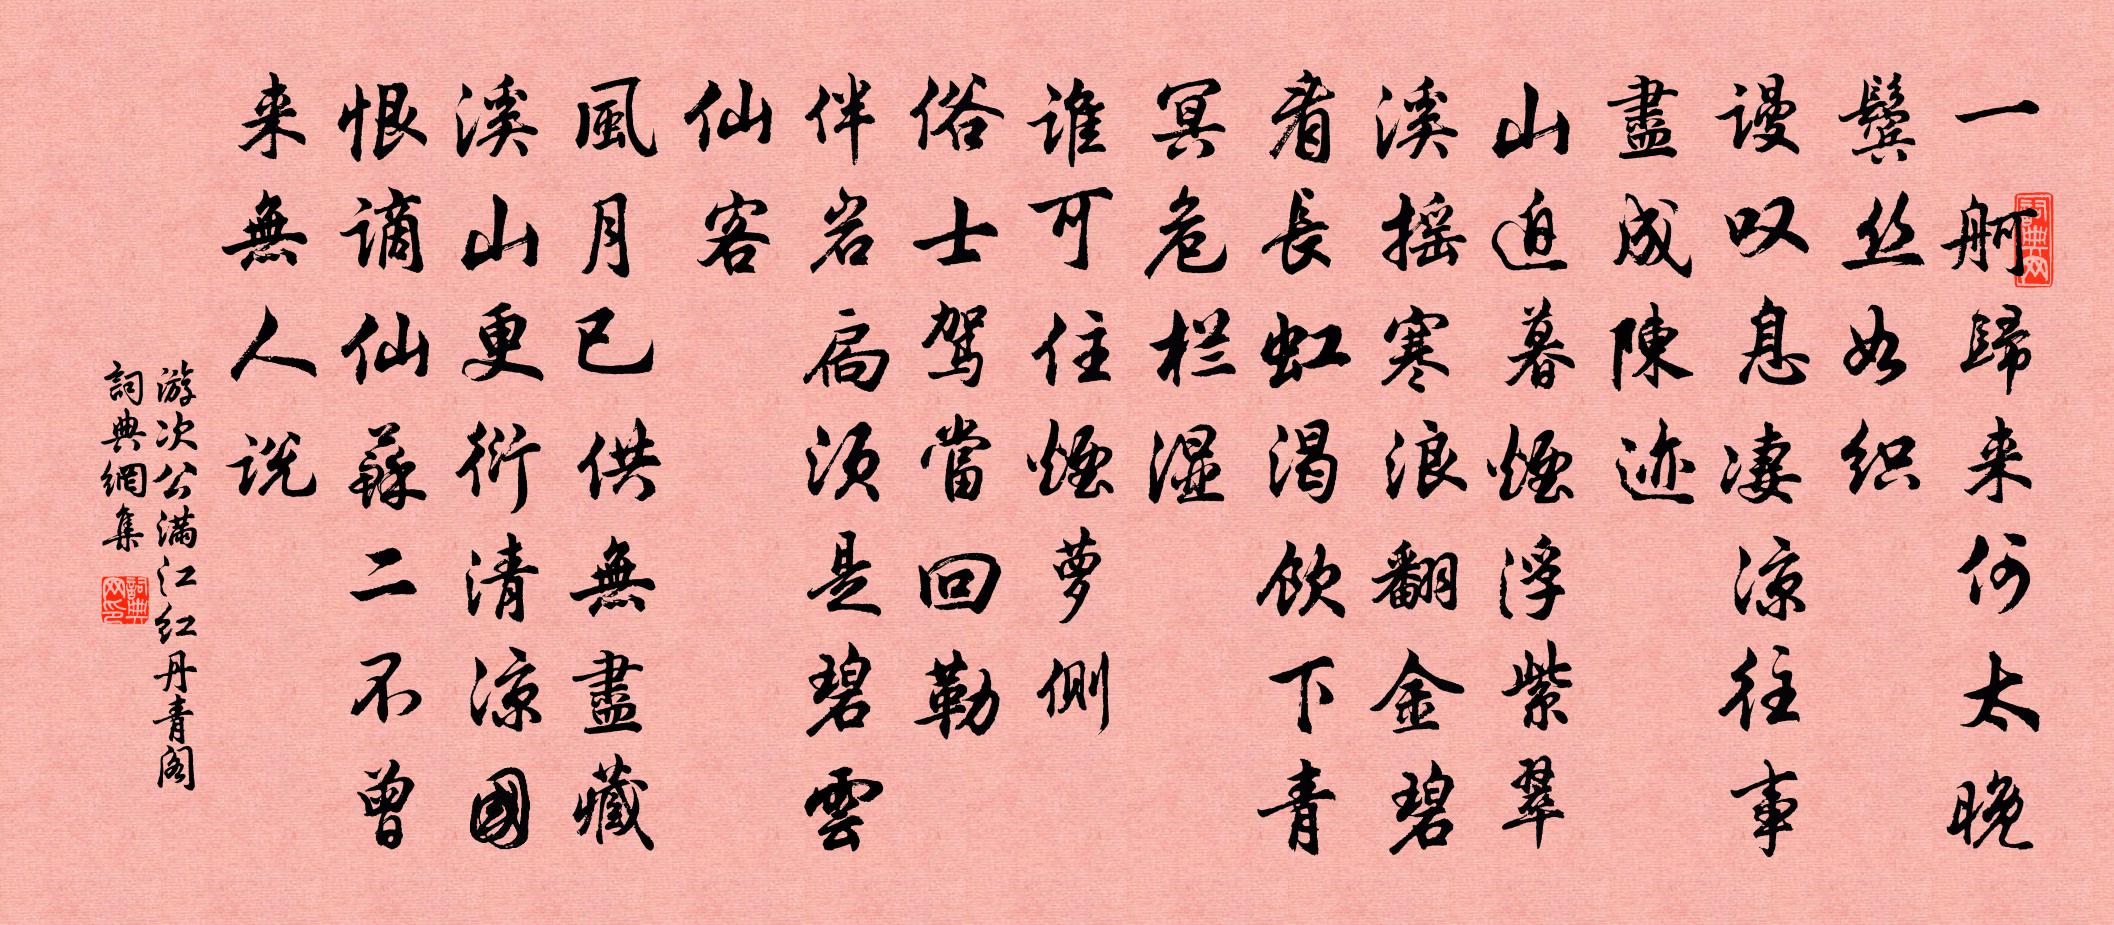 一舸歸来何太晚
鬓丝如织
谩叹息凄凉往事
盡成陳迹
山迫暮煙浮紫翠
溪摇寒浪翻金碧
看長虹渴飲下青
冥危栏湿
誰可住煙萝侧
俗士駕當回勒
伴岩扃须是碧雲
仙客
風月已供無盡藏
溪山更衍清凉國
恨谪仙蘇二不曾
来無人说
游次公满江红丹青阁
詞典網集